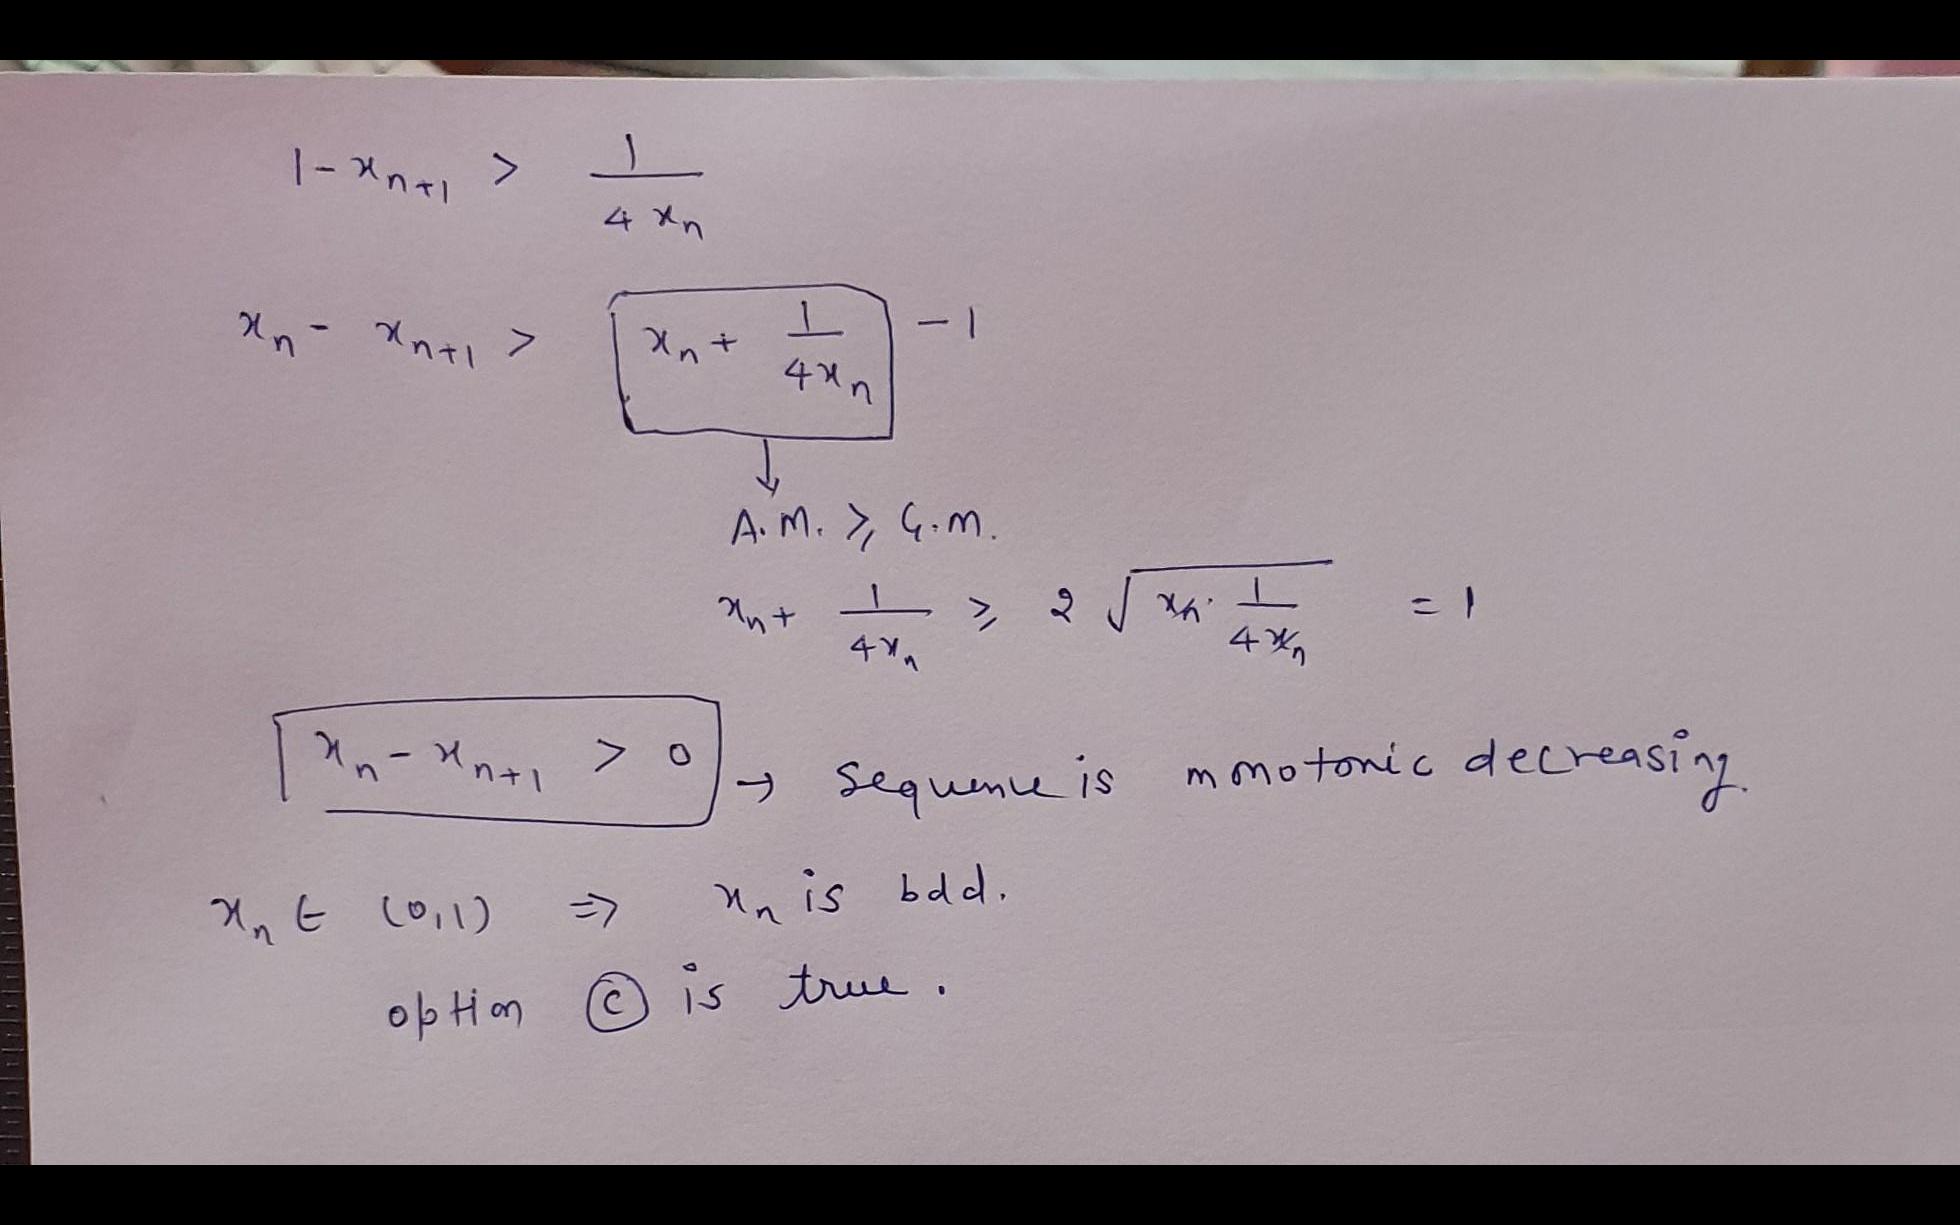 1 - xₙ₊₁ > 1/(4xₙ)
xₙ - xₙ₊₁ > xₙ + 1/(4xₙ) - 1
↓
A.M. ≥ G.M.
xₙ + 1/(4xₙ) ≥ 2√(xₙ · 1/(4xₙ)) = 1
xₙ - xₙ₊₁ > 0 → Sequence is monotonic decreasing.
xₙ ∈ (0,1) ⇒ xₙ is bdd.
option ⓒ is true.